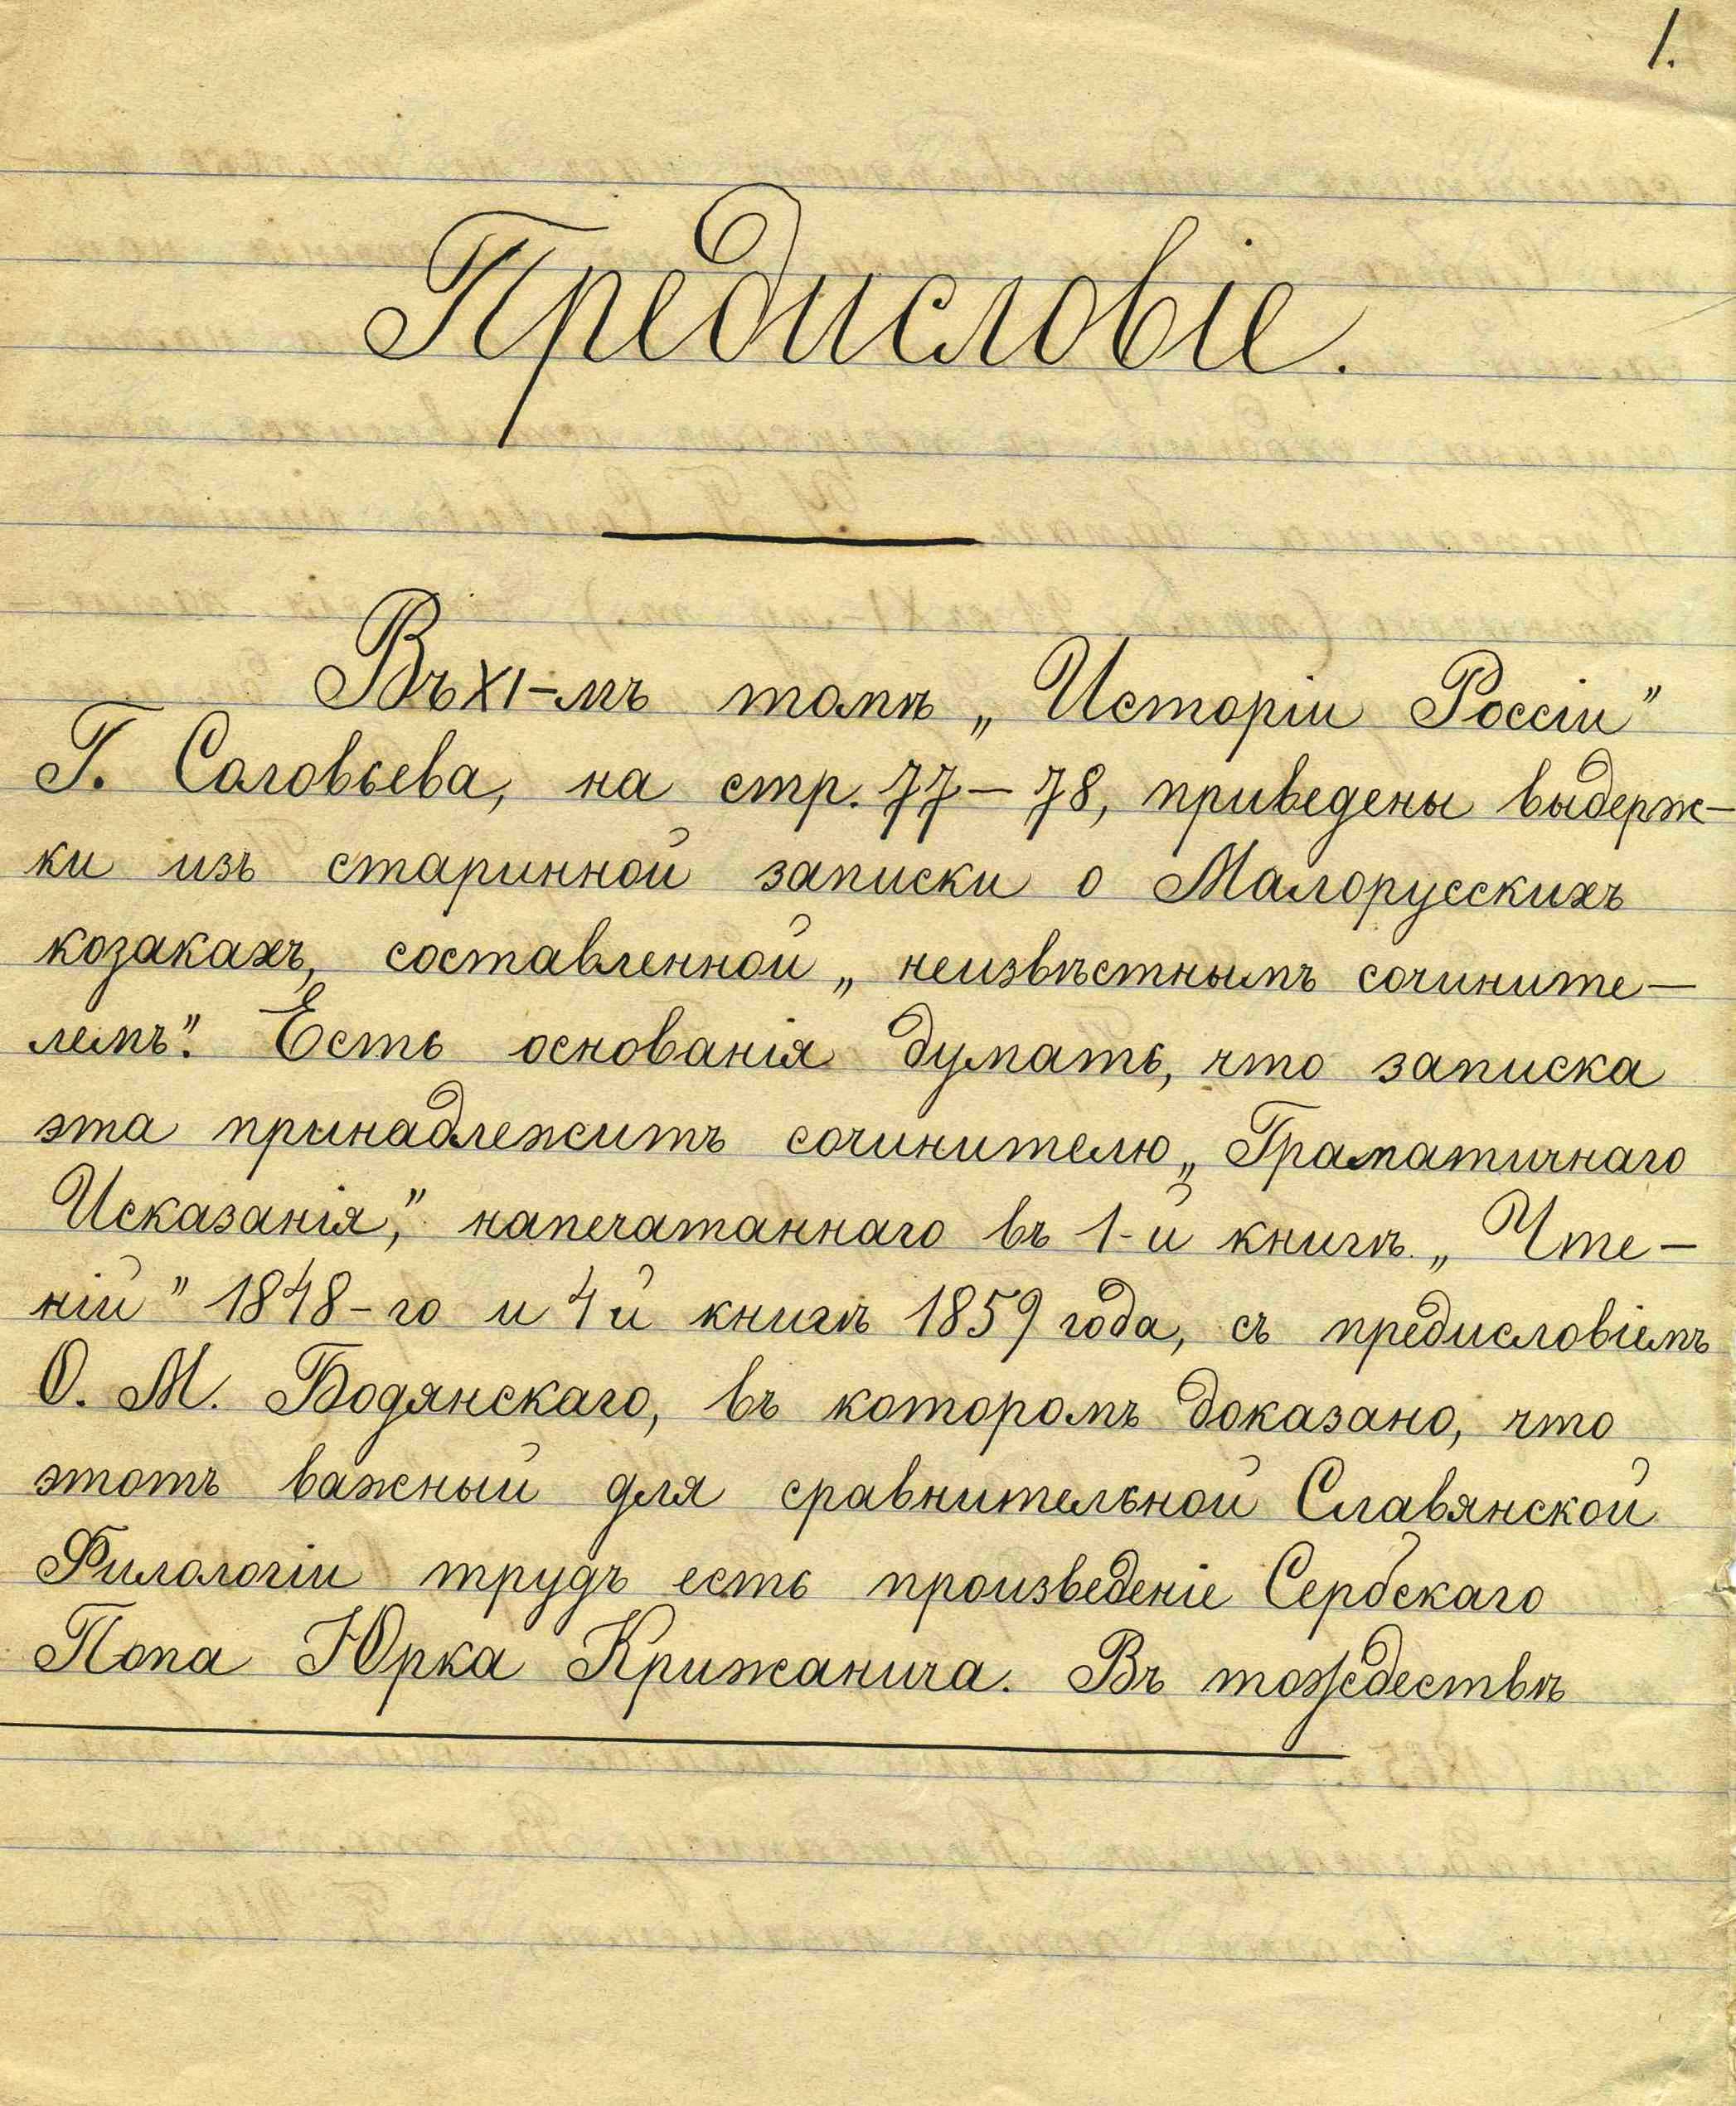 1.
Предисловіе.
Въ XI-мъ томѣ „Исторіи Россіи"
Г. Соловьева, на стр. 77-78, приведены выдерж-
ки изъ старинной записки о Малорусскихъ
козакахъ, составленной „неизвѣстнымъ сочините-
лемъ". Есть основанія думать, что записка
эта принадлежитъ сочинителю „Граматичнаго
Исказанія", напечатаннаго въ 1-й книгѣ „Чте-
ній" 1848-го и 4й книгѣ 1859 года, съ предисловіемъ
О. М. Бодянскаго, въ которомъ доказано, что
этотъ важный для сравнительной Славянской
Филологіи трудъ есть произведеніе Сербскаго
Попа Юрка Крижанича. Въ тождествѣ